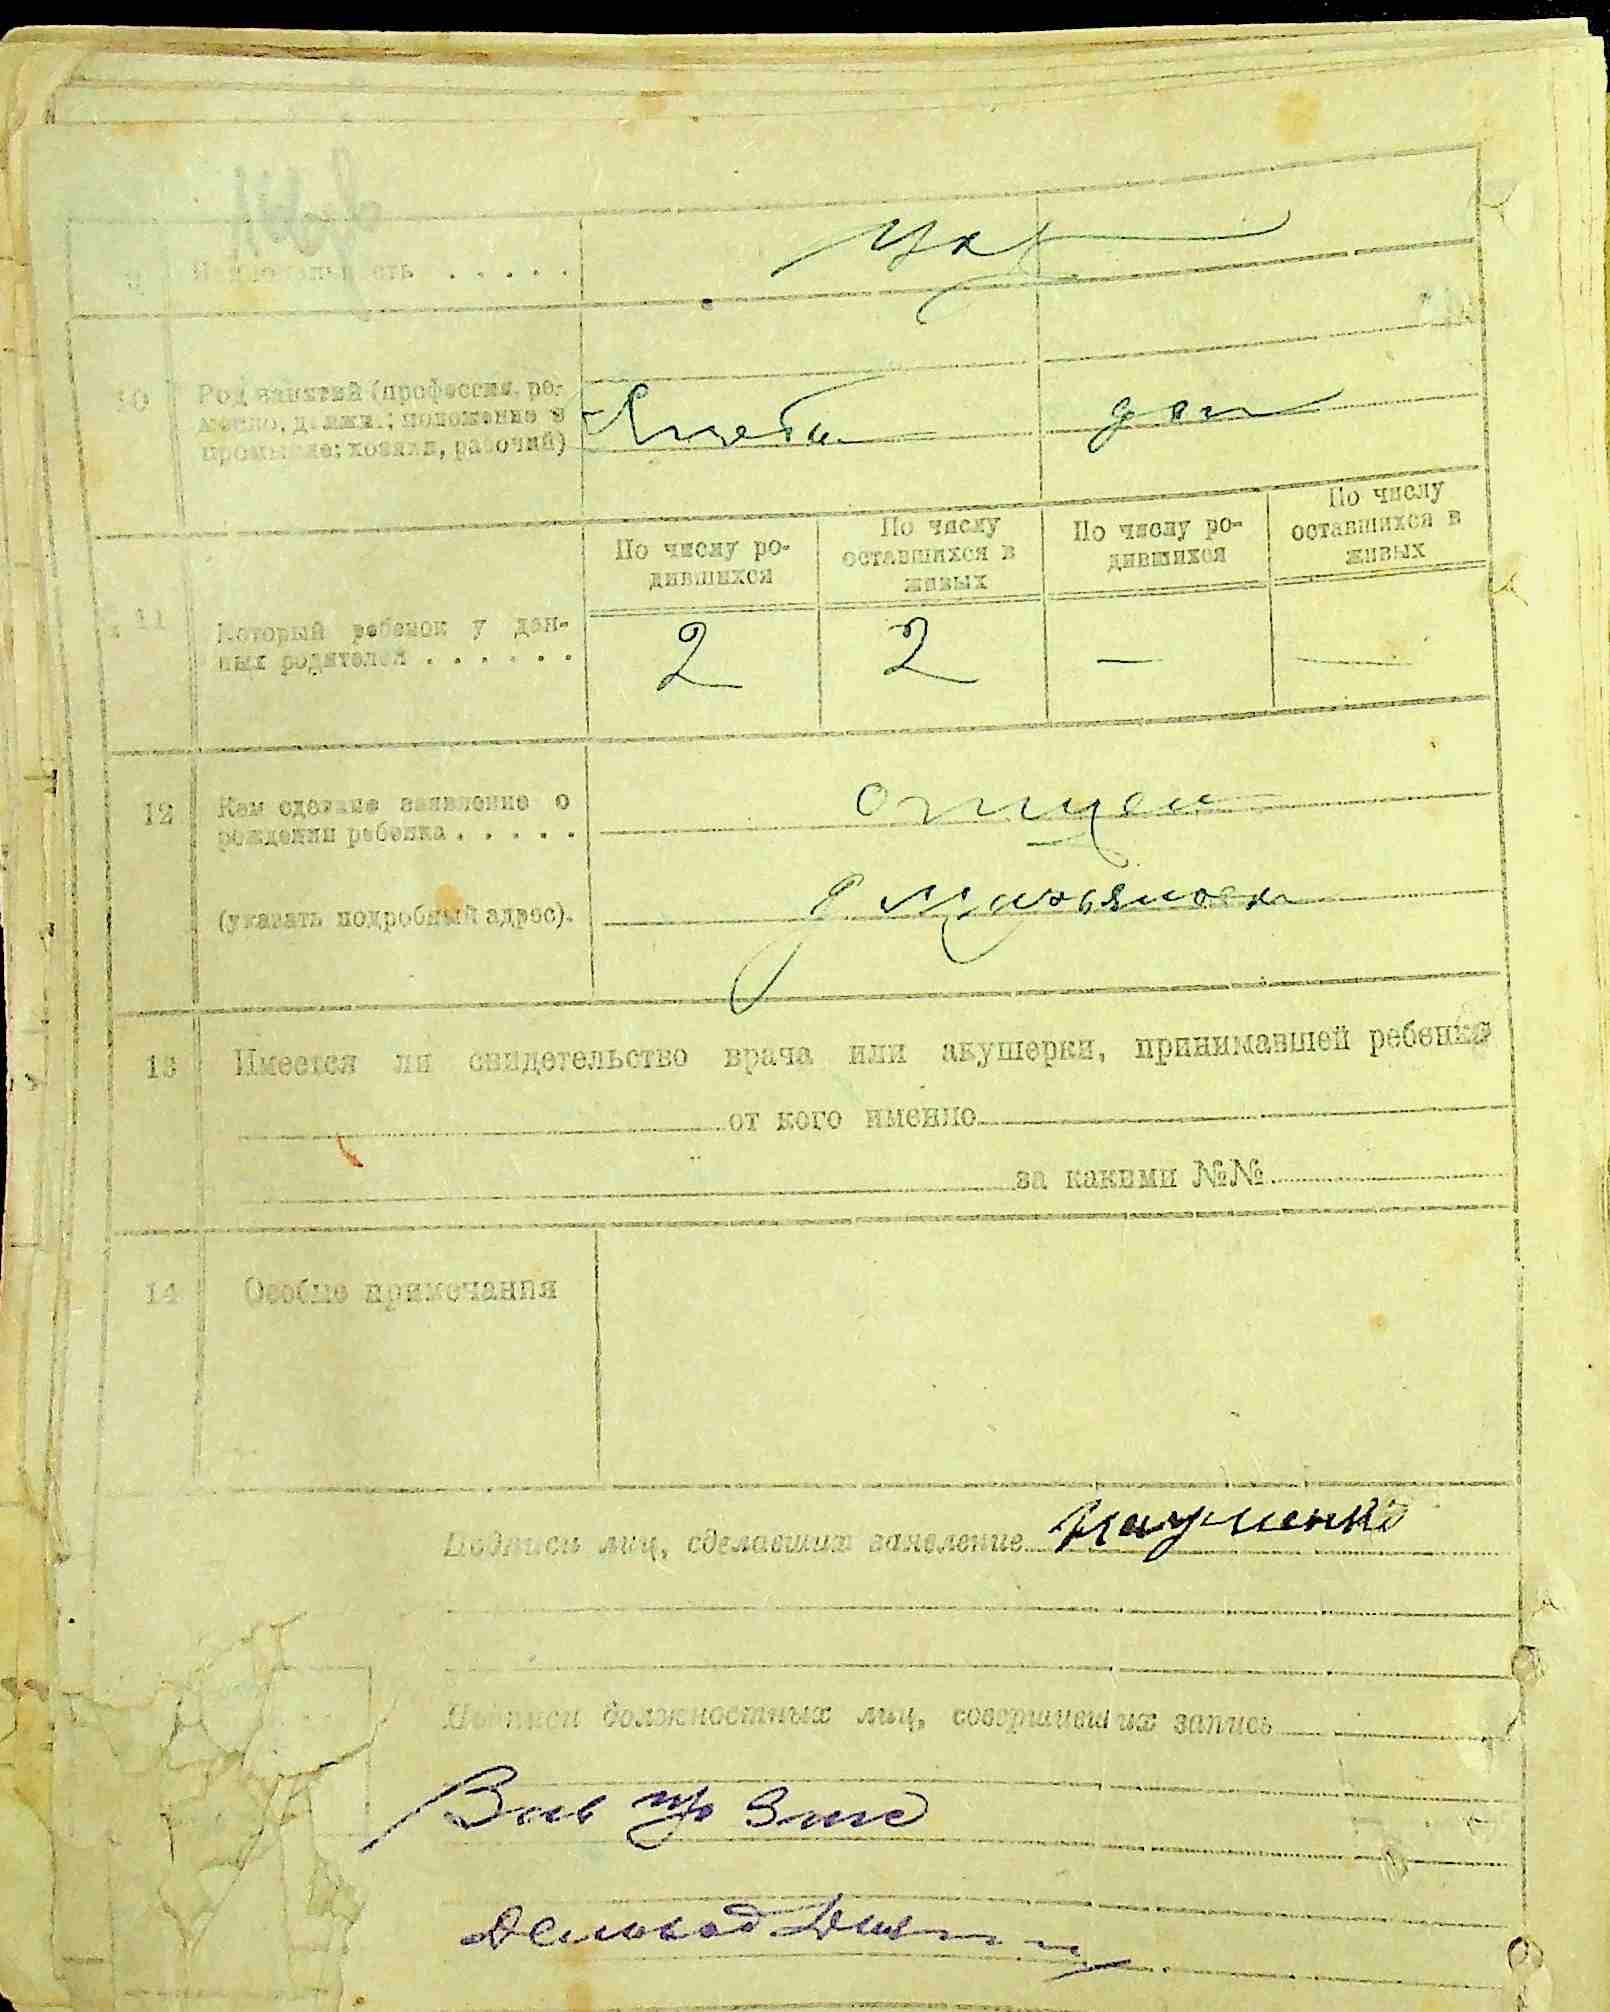 9 Национальность . . . . .
Укр
10 Род занятий (профессия, ре-
месло, должн.; положение в
промысле: хозяин, рабочий)
Хлебо дом
По числу ро-
дившихся
По числу
оставшихся в
живых
По числу ро-
дившихся
По числу
оставшихся в
живых
11 Который ребенок у дан-
ных родителей . . . . . .
2 2 — —
12 Кем сделано заявление о
рождении ребенка . . . . .
отцем
(указать подробный адрес).
13 Имеется ли свидетельство врача или акушерки, принимавшей ребенка
от кого именно
за какими №№
14 Особые примечания
Подписи лиц, сделавших заявление Науменко
Подписи должностных лиц, совершивших запись